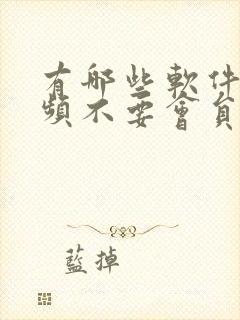 有哪些軟件
頻不要會員
藍掉